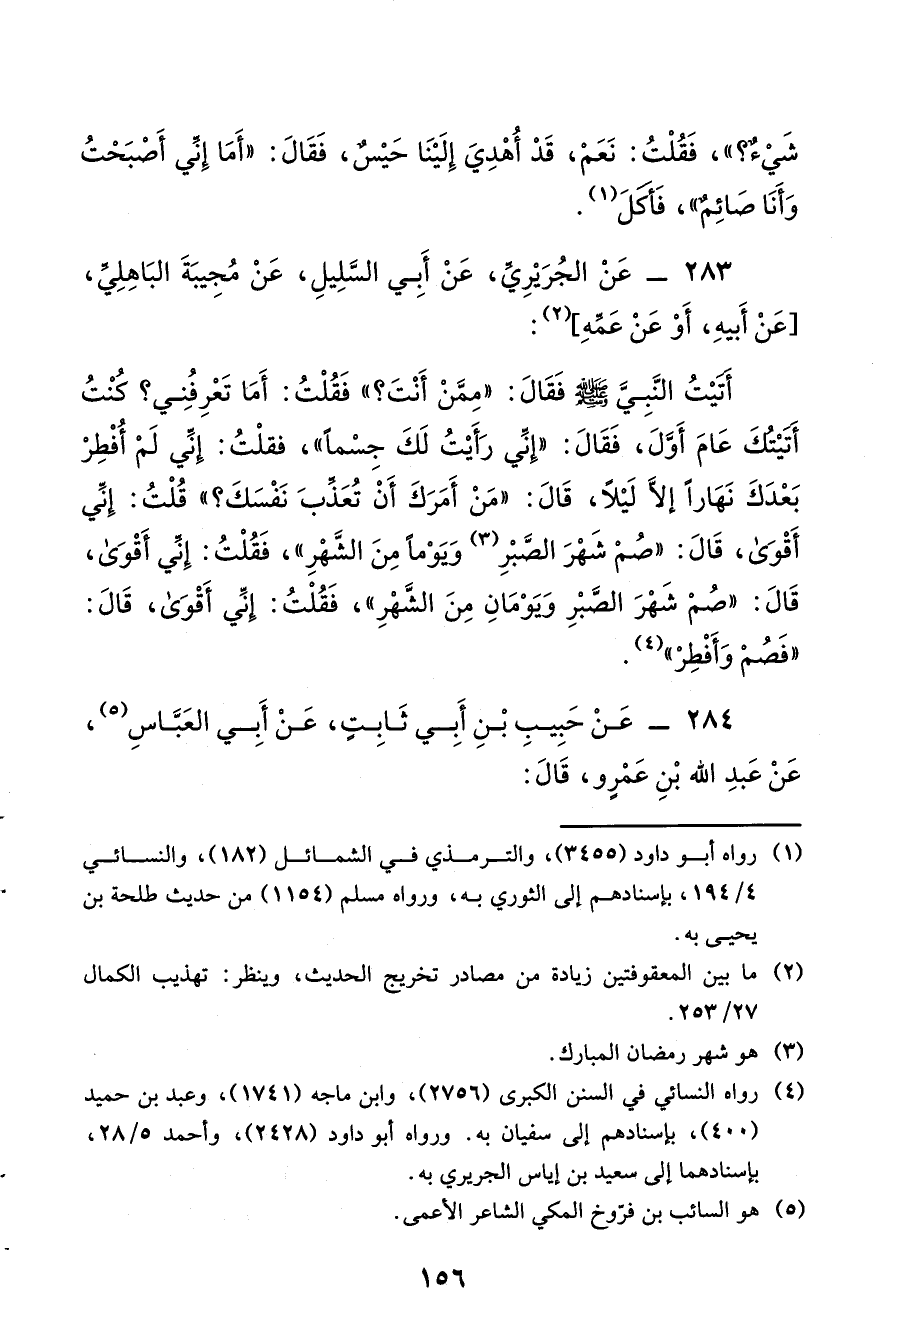 شَيْءٌ؟»، فَقُلْتُ: نَعَمْ، قَدْ أُهْدِيَ إِلَيْنَا حَيْسٌ، فَقَالَ: «أَمَا إِنِّي أَصْبَحْتُ
وَأَنَا صَائِمٌ»، فَأَكَلَ(١).
٢٨٣ ـ عَنْ الجُرَيْرِيِّ، عَنْ أَبِي السَّلِيلِ، عَنْ مُجِيبَةَ البَاهِلِيِّ،
[عَنْ أَبيهِ، أَوْ عَنْ عَمِّهِ](٢):
أَتَيْتُ النَّبِيَّ ﷺ فَقَالَ: «مِمَّنْ أَنْتَ؟» فَقُلْتُ: أَمَا تَعْرِفُنِي؟ كُنْتُ
أَتَيْتُكَ عَامَ أَوَّلَ، فَقَالَ: «إِنِّي رَأَيْتُ لَكَ جِسْماً»، فقلْتُ: إِنِّي لَمْ أُفْطِرْ
بَعْدَكَ نَهَاراً إِلاَّ لَيْلاً، قَالَ: «مَنْ أَمَرَكَ أَنْ تُعَذِّبَ نَفْسَكَ؟» قُلْتُ: إِنِّي
أَقْوَىٰ، قَالَ: «صُمْ شَهْرَ الصَّبْرِ(٣) وَيَوْماً مِنَ الشَّهْرِ»، فَقُلْتُ: إِنِّي أَقْوَىٰ،
قَالَ: «صُمْ شَهْرَ الصَّبْرِ وَيَوْمَانِ مِنَ الشَّهْرِ»، فَقُلْتُ: إِنِّي أَقْوَىٰ، قَالَ:
«فَصُمْ وَأَفْطِرْ»(٤).
٢٨٤ ـ عَنْ حَبِيبِ بْنِ أَبِي ثَابِتٍ، عَنْ أَبِي العَبَّاسِ(٥)،
عَنْ عَبدِ الله بْنِ عَمْرٍو، قَالَ:
(١) رواه أبو داود (٣٤٥٥)، والترمذي في الشمائل (١٨٢)، والنسائي
٤/ ١٩٤، بإسنادهم إلى الثوري به، ورواه مسلم (١١٥٤) من حديث طلحة بن
يحيى به.
(٢) ما بين المعقوفتين زيادة من مصادر تخريج الحديث، وينظر: تهذيب الكمال
٢٧/ ٢٥٣.
(٣) هو شهر رمضان المبارك.
(٤) رواه النسائي في السنن الكبرى (٢٧٥٦)، وابن ماجه (١٧٤١)، وعبد بن حميد
(٤٠٠)، بإسنادهم إلى سفيان به. ورواه أبو داود (٢٤٢٨)، وأحمد ٥/ ٢٨،
بإسنادهما إلى سعيد بن إياس الجريري به.
(٥) هو السائب بن فرّوخ المكي الشاعر الأعمى.
١٥٦